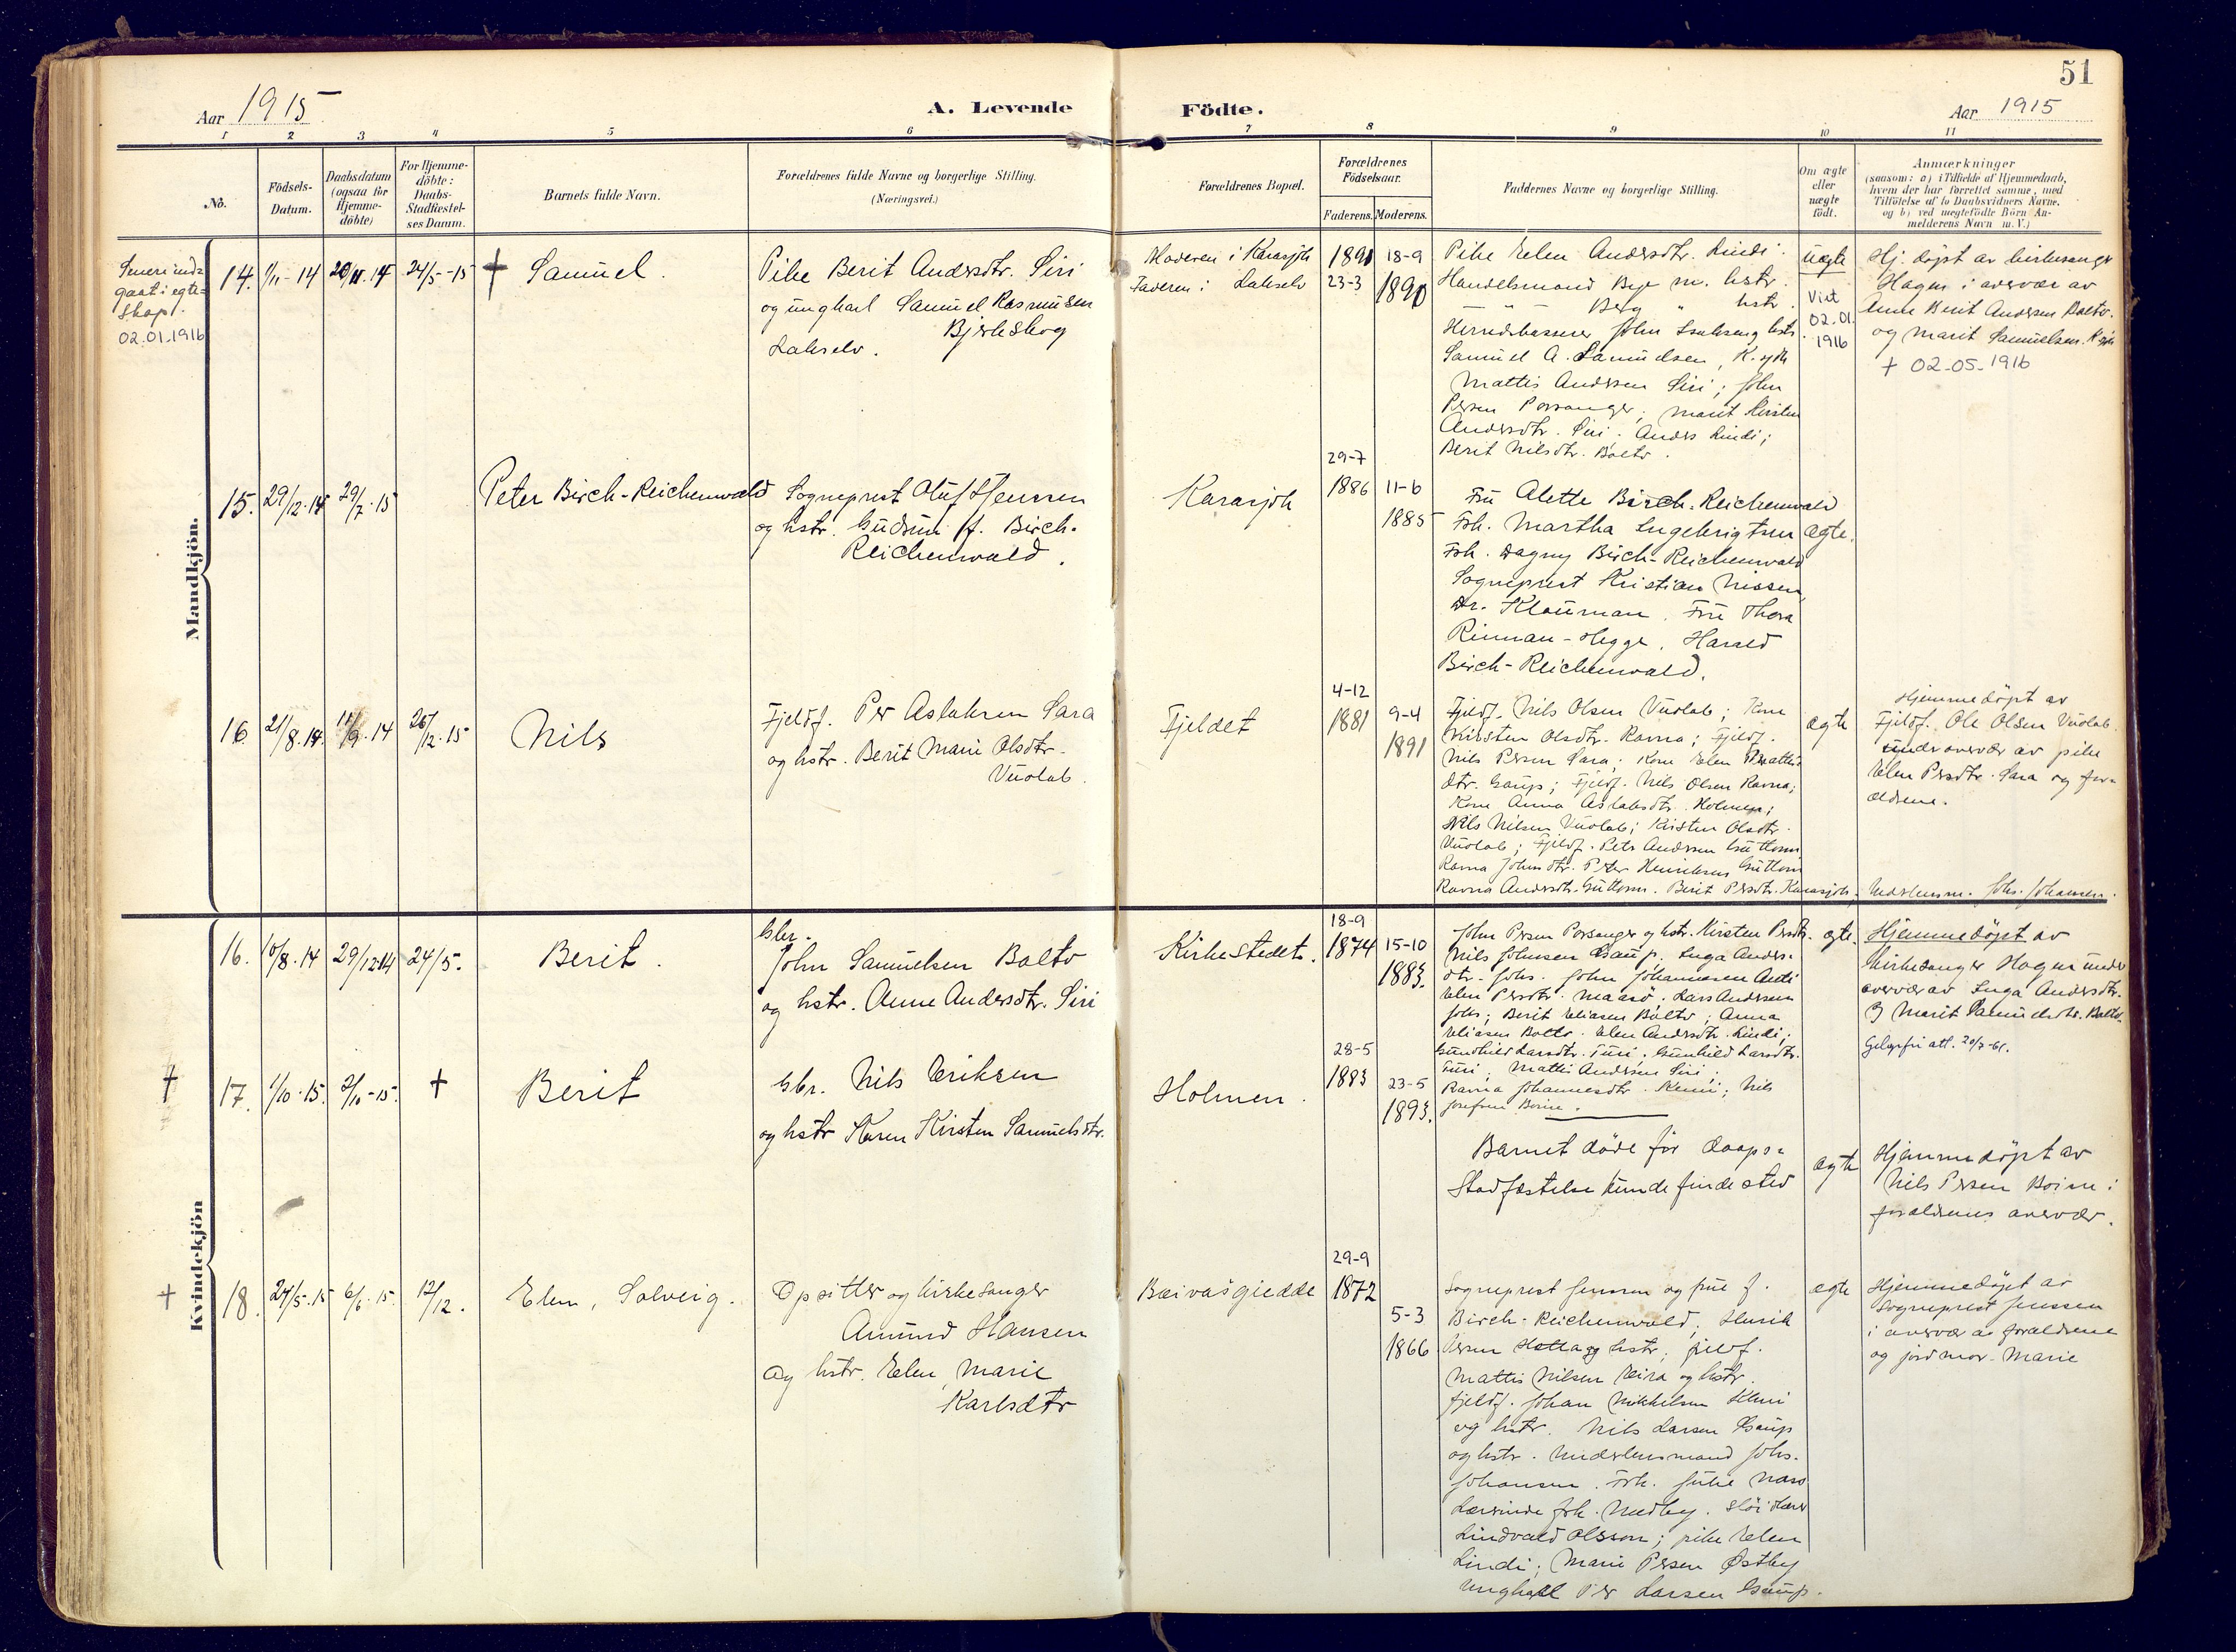 51
Aar 1915
A. Levende Födte.
Aar 1915
1 2 3 4 5 6 7 8 9 10 11
No.
Födsels-Datum.
Daabsdatum (ogsaa for Hjemme-döbte)
For Hjemme-döbte: Daabs-Stadfæstel-ses Datum.
Barnets fulde Navn.
Forældrenes fulde Navne og borgerlige Stilling.
(Næringsvei.)
Forældrenes Bopæl.
Forældrenes Födselsaar.
Faderens. Moderens.
Faddernes Navne og borgerlige Stilling.
Om ægte eller uægte födt.
Anmærkninger
(saasom: a) i Tilfælde af Hjemmedaab,
hvem der har forrettet samme, med
Tilföielse af to Daabsvidners Navne,
og b) ved uægtefödte Börn An-
melderens Navn m. V.)
Mandkjön.
Senere ind-
gaat i egte-
skap.
02.01.1916
14. 1/11-14 20/11.14 24/5-15 † Samuel.
Pike Berit Andersdtr. Siri
og ungkarl Samuel Rasmusen
Bjerkskog
Lakselv.
Moderen i Karasjok
Faderen i Lakselv
1891 18-9
23-3 1890
Pike Elen Andersdtr. Lindi.
Handelsmand Beje m. hstr.
— " — Berg " hstr.
Herredskasserer John Isaksen og hstr.
Samuel A. Samuelsen, K.sjok
Mattis Andersen Siri; John
Persen Porsanger; Marit Kirsten
Andersdtr. Siri; Anders Lindi;
Berit Nilsdtr. Balto.
Uægte
Viet
02.01.
1916
Hj. döpt av kirkesanger
Hagen i overvær av
Anne Berit Andersen Balto.
og Marit Samuelsen. K.sjok
† 02-05-1916
15. 29/12.14 29/7.15 Peter Birch-Reichenwald
Sogneprest Oluf Jenssen
og hstr. Gudrun f. Birch-
Reichenwald.
Karasjok
29-7
1886 11-6
1885
Fru Alette Birch-Reichenwald
Frk. Martha Ingebrigtsen
Frk. Dagny Birch-Reichenwald
Sogneprest Kristian Nissen,
Dr. Klouman. Fru Thora
Rinnan-Hegge. Harald
Birch-Reichenwald.
ægte.
16. 21/8.14. 11/9.14 26/12.15 Nils
Fjeldf. Per Aslaksen Sara
og hstr. Berit Marie Olsdtr.
Vuolab.
Fjeldet
4-12
1881 9-4
1891
Fjeldf. Nils Olsen Vuolab; Kone
Kirsten Olsdtr. Ravna; Fjeldf.
Nils Persen Sara; Kone Elen Mattis
dtr. Gaup; Fjeldf. Nils Olsen Ravna;
Kone Anna Aslaksdtr. Holmen;
Nils Nilsen Vuolab; Kirsten Olsdtr.
Vuolab; Fjeldf. Peter Andersen Guttorm
Ravna Johnsdtr. Peter Henriksen Guttorm
Ravna Andersdtr. Guttorm. Berit Persdtr. Karasjok. Underlensm. Johs. Johansen.
ægte
Hjemmedöpt av
Fjeldf. Ole Olsen Vuolab.
under overvær av pike
Elen Persdtr. Sara og for-
ældrene.
Kvindekjön
16. 10/8.14 29/12.14 24/5. Berit.
Gbr.
John Samuelsen Balto
og hstr. Anne Andersdtr. Siri
Kirkestedet.
18-9
1874 15-10
1883.
John Persen Porsanger og hstr. Kirsten Persdtr.
Nils Johnsen Gaup. Inga Anders-
dtr. Johs. John Johannesen Anti
Elen Persdtr. Maasö. Lars Andersen
Johs; Berit Eliasen Balto; Anna
Eliasen Balto. Elen Andersdtr. Lindi;
Gundhild Larsdtr. Turi. Gunhild Larsdtr.
Turi. Mattis Andersen Siri.
Ravna Johannesdtr. Kemi; Nils
Josefsen Boine.
ægte.
Hjemmedöpt av
kirkesanger Hagen under
overvær av Inga Andersdtr.
og Marit Samuelsdtr. Balto.
Gebyrfri att. 20/7-61.
† 17. 1/10.15. 3/10-15. † Berit
Gbr. Nils Eriksen
og hstr Karen Kirsten Samuelsdtr.
Holmen.
28-5
1883 23-5
1893.
Barnet döde för daaps-
Stadfæstelse kunde finde sted
ægte
Hjemmedöpt av
Nils Persen Boine i
forældrenes overvær.
† 18. 24/5.15 6/6.15. 12/12. Elen, Solveig.
Opsitter og kirkesanger
Amund Hansen
og hstr. Elen, Marie
Karlsdtr
Baivašgiedde
29-9
1872
5-3
1866
Sogneprest Jenssen og frue f.
Birch-Reichenwald; Henrik
Persen Holla og hstr; fjeldf.
Mattis Nilsen Eira og hstr.
fjeldf. Johan Mikkelsen Utsi
og hstr. Nils Larsen Gaup
og hstr. Underlensmand Johs.
Johansen. Frk. Julie Næss
Lærerinde frk. Medby. Slöidlærer
Lindvald Olsson; pike Elen
Lindi; Marie Persen Østby
Ungkarl Per Larsen Gaup.
ægte
Hjemmedöpt av
Sogneprest Jenssen
i overvær av forældrene
og jordmor Marie